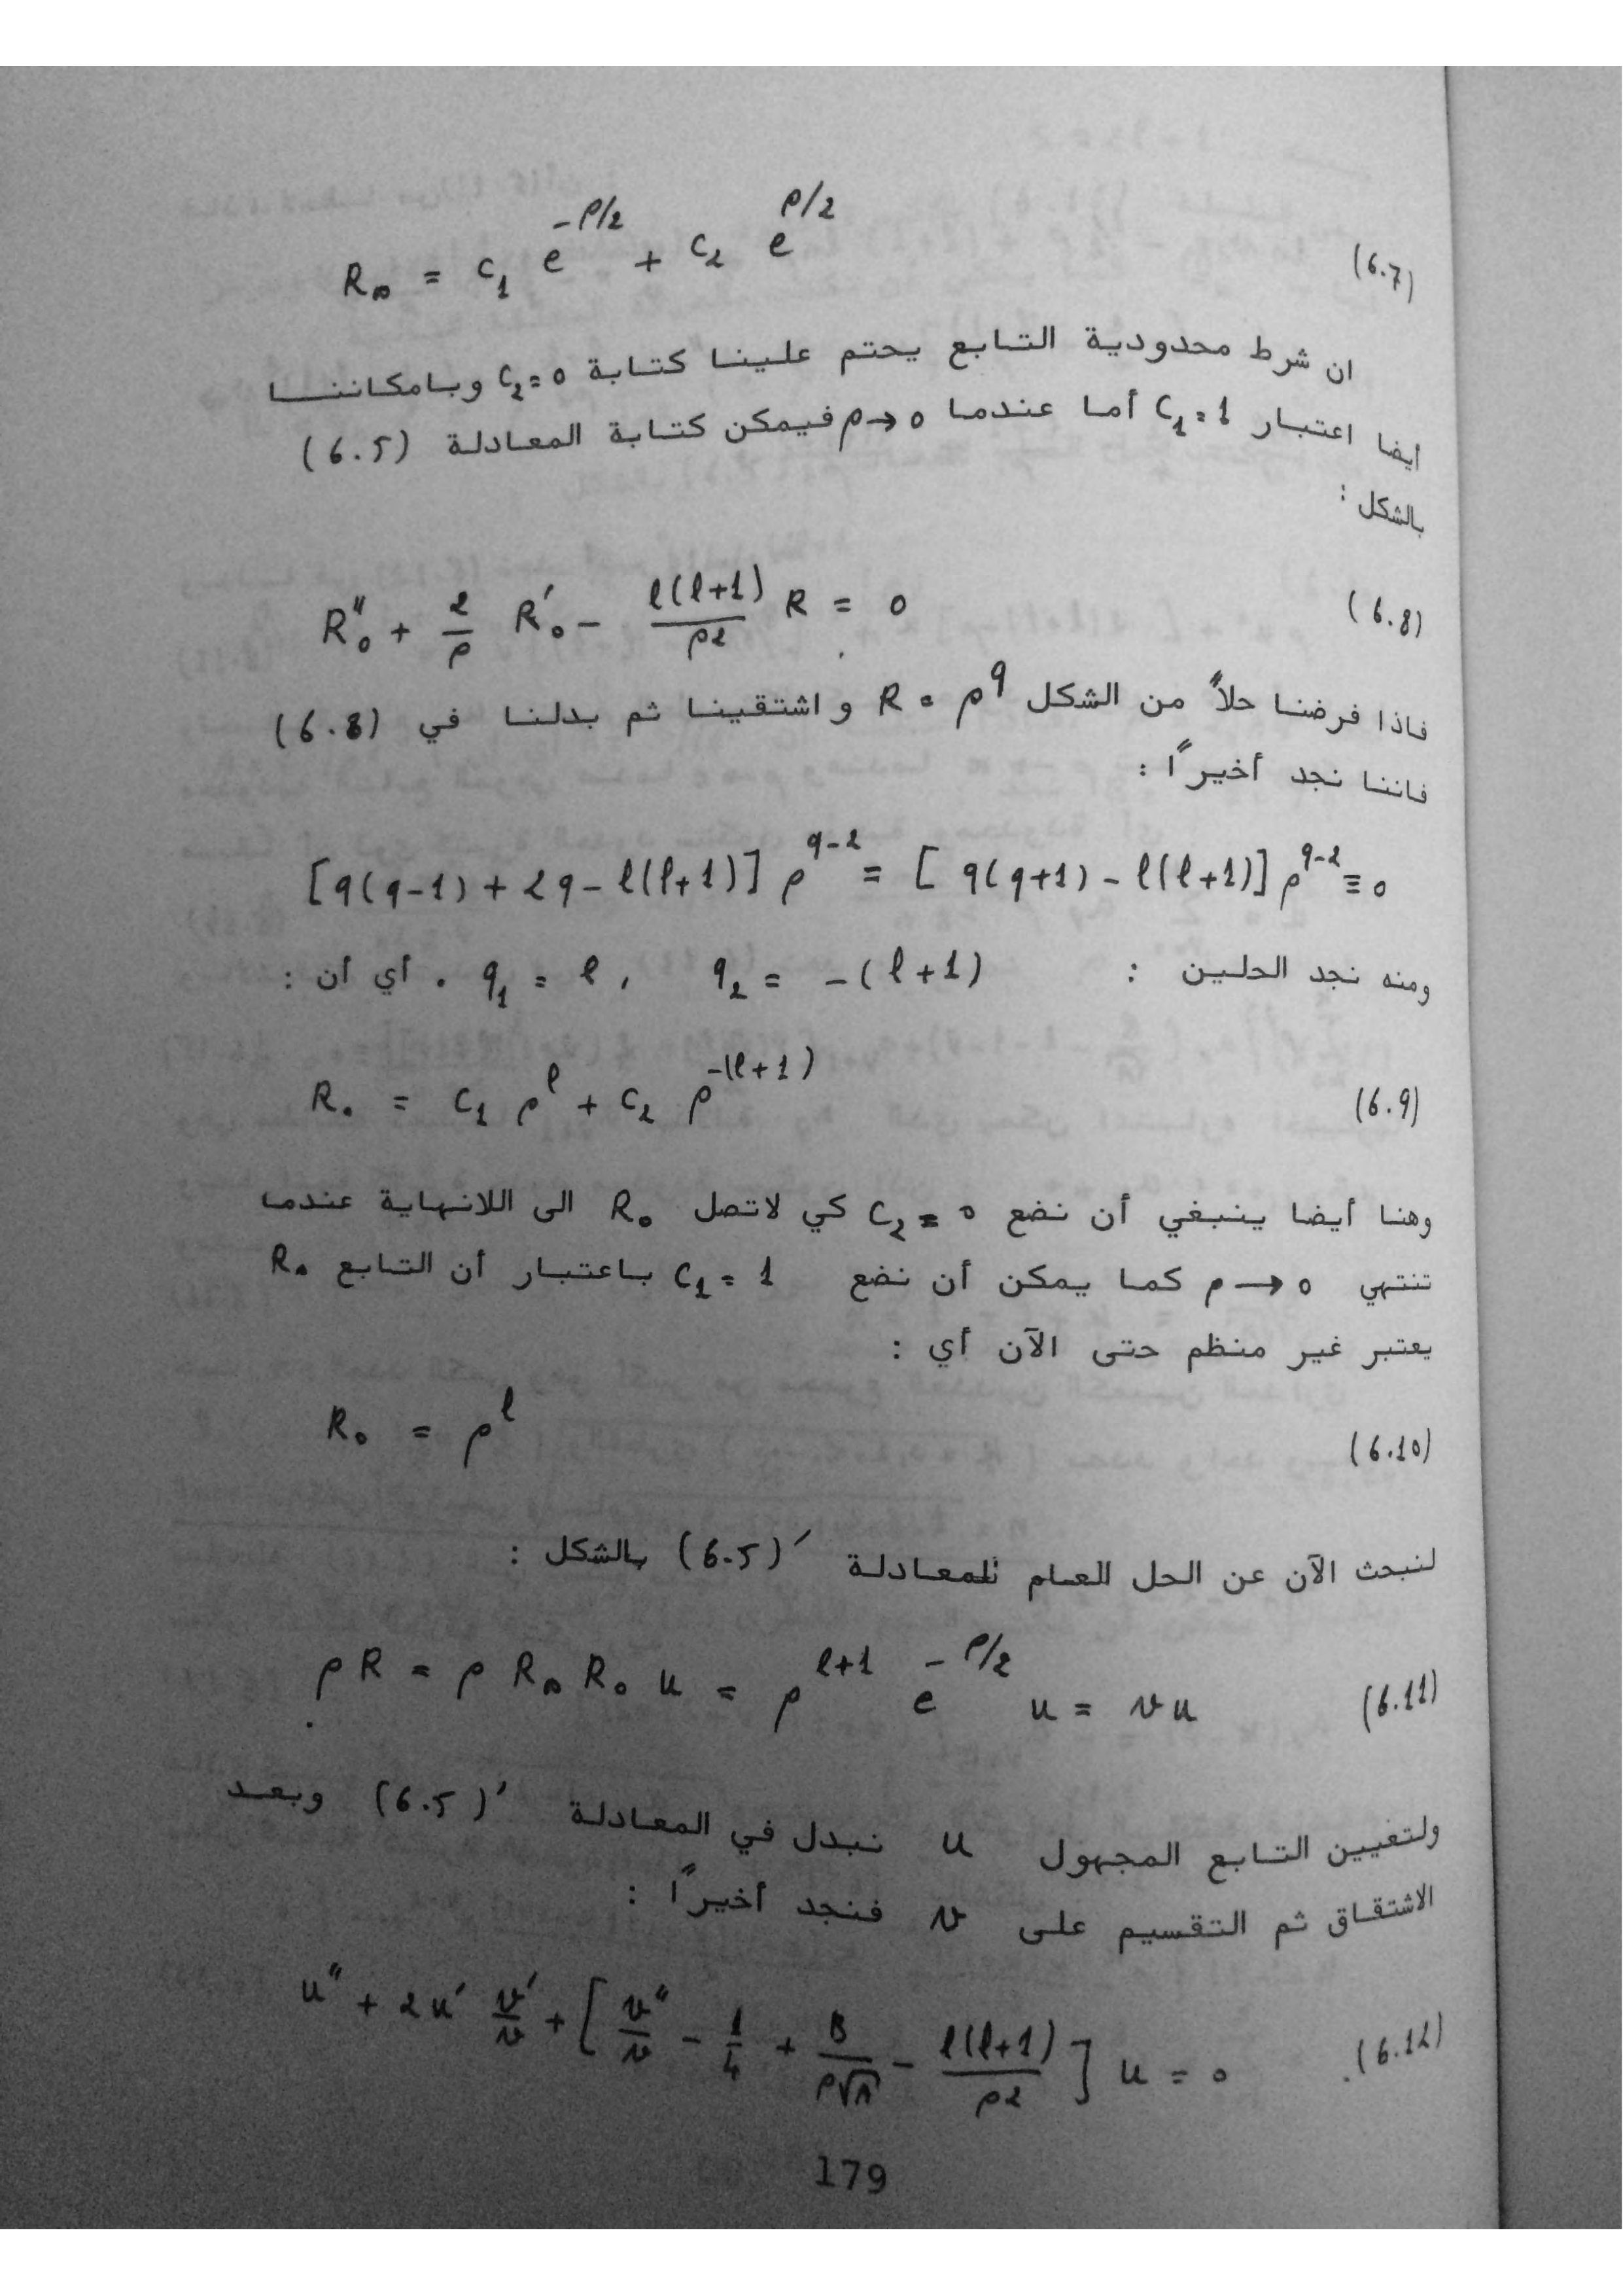 R∞ = c₁ e^{-ρ/2} + c₂ e^{ρ/2} (6.7)
ان شرط محدودية التابع يحتم علينا كتابة c₂=0 وبامكاننا
أيضا اعتبار c₁=1 أما عندما ρ→0 فيمكن كتابة المعادلة (6.5)
بالشكل :
R₀'' + 2/ρ R₀' - l(l+1)/ρ² R = 0 (6.8)
فاذا فرضنا حلاً من الشكل R = ρ^q و اشتقينا ثم بدلنا في (6.8)
فاننا نجد أخيراً :
[q(q-1) + 2q - l(l+1)] ρ^{q-2} = [q(q+1) - l(l+1)] ρ^{q-2} ≡ 0
ومنه نجد الحلين : q₂ = -(l+1) , q₁ = l . أي أن :
R₀ = c₁ ρ^l + c₂ ρ^{-(l+1)} (6.9)
وهنا أيضا ينبغي أن نضع c₂ = 0 كي لاتصل R₀ الى اللانهاية عندما
تنتهي ρ → 0 كما يمكن أن نضع c₁ = 1 باعتبار أن التابع R₀
يعتبر غير منظم حتى الآن أي :
R₀ = ρ^l (6.10)
لنبحث الآن عن الحل العام للمعادلة (6.5)' بالشكل :
ρR = ρ R∞ R₀ u = ρ^{l+1} e^{-ρ/2} u = v u (6.11)
ولتعيين التابع المجهول u نبدل في المعادلة (6.5)' وبعد
الاشتقاق ثم التقسيم على v فنجد أخيراً :
u'' + 2u' v'/v + [v''/v - 1/4 + B/(ρ√A) - l(l+1)/ρ²] u = 0 (6.12)
179